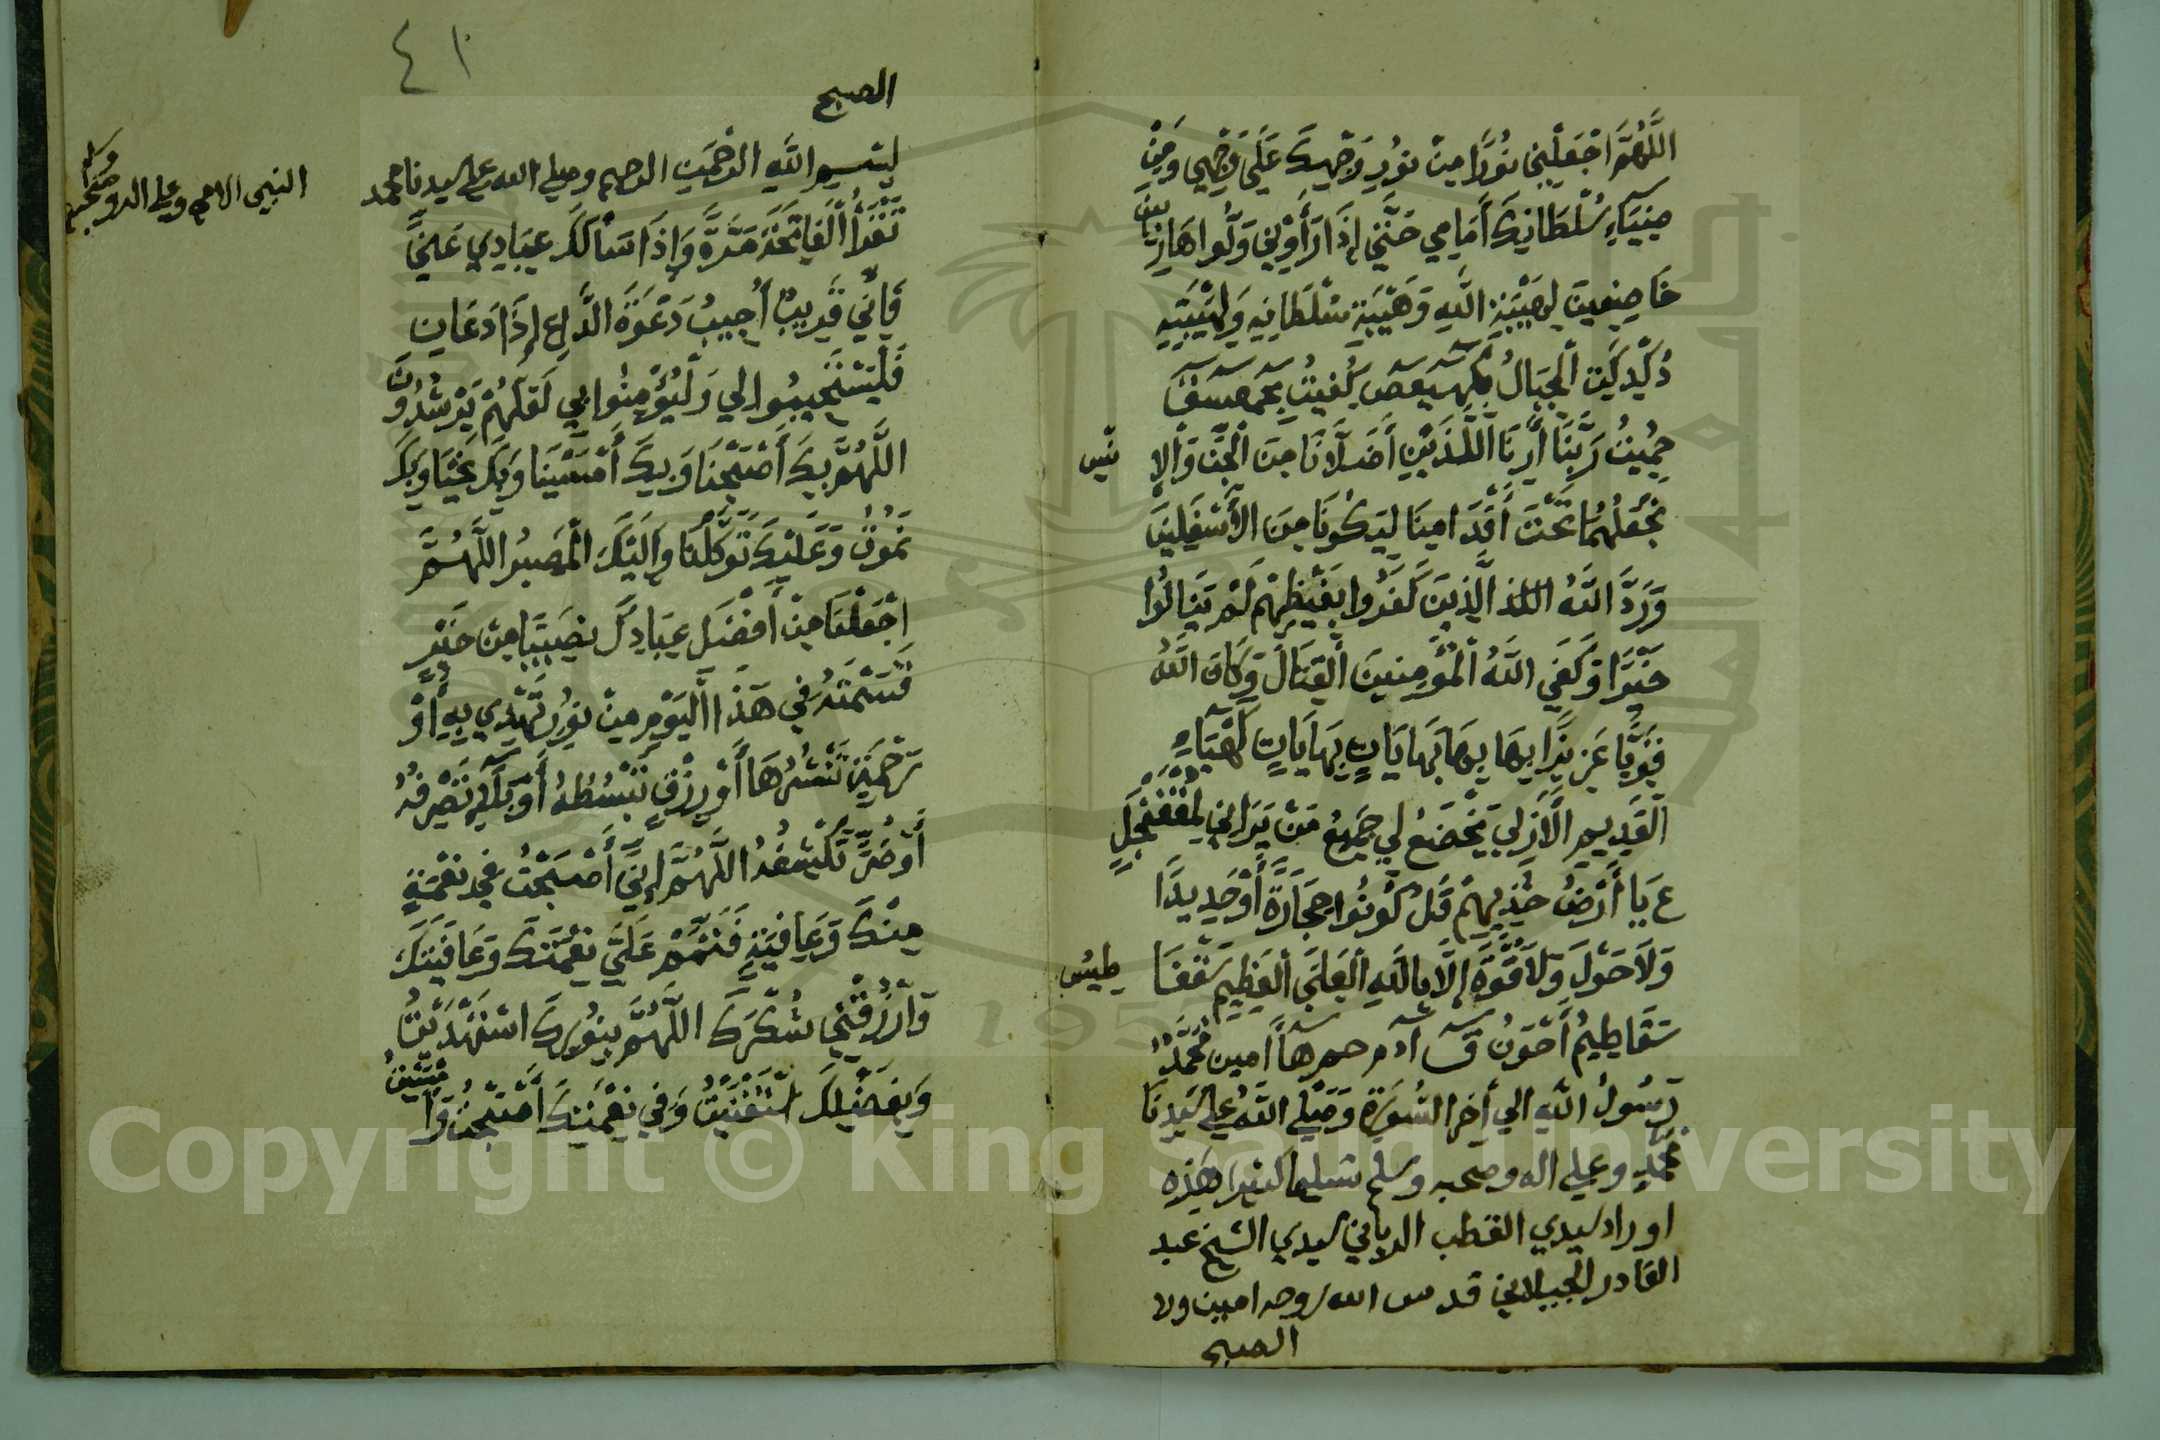 اللَّهُمَّ اجْعَلْنِي نُورًا مِنْ نُورِ وَجْهِكَ عَلَى وَجْهِي وَمِنْ
ضِيَاءِ سُلْطَانِكَ أَمَامِي حَتَّى إِذَا رَأَوْنِي وَلَّوا هَارِبِينَ
خَاضِعِينَ لِهَيْبَةِ اللَّهِ وَهَيْبَةِ سُلْطَانِهِ وَلِهَيْبَتِهِ
دُكْدِكَتِ الْجِبَالُ بِكهيعص كُفِيتُ بِحمعسق
حُمِيتُ رَبَّنَا أَرِنَا اللَّذَيْنِ أَضَلَّانَا مِنَ الْجِنِّ وَالْإِ
نْسِ
نَجْعَلْهُمَا تَحْتَ أَقْدَامِنَا لِيَكُونَا مِنَ الْأَسْفَلِينَ
وَرَدَّ اللَّهُ الَّذِينَ كَفَرُوا بِغَيْظِهِمْ لَمْ يَنَالُوا
خَيْرًا وَكَفَى اللَّهُ الْمُؤْمِنِينَ الْقِتَالَ وَكَانَ اللَّهُ
قَوِيًّا عَزِيزًا بِهَا بِهَا بَهَايَاتٍ بِهَايَاتٍ
الْقَدِيمِ الْأَزَلِي يَخْضَعُ لِي جَمِيعُ مَنْ يَرَانِي
ع يَا أَرْضُ خُذِيهِمْ قُلْ كُونُوا حِجَارَةً أَوْ حَدِيدًا
وَلَا حَوْلَ وَلَا قُوَّةَ إِلَّا بِاللَّهِ الْعَلِيِّ الْعَظِيمِ
سَقَاطِيمُ أَحُونُ قٓ أدم حم هآ أمين مُحَمَّدٌ
رَسُولُ اللَّهِ الى أخر السُّورَةِ وَصَلَّى اللَّهُ على سَيِّدِنَا
مُحَمَّدٍ وعلى اله وصحبه وسلم تسليما كثيرا هَذِهِ
اوراد سيدي القطب الرباني سيدي الشيخ عبد
القادر الجيلاني قدس الله روحه امين ورد
الصبح
٤١
الصبح
بِسْمِ اللَّهِ الرَّحْمَنِ الرحيم وصلى الله على سيدنا محمد
النبي الامي وعلى اله وصحبه وسلم
تَقْرَأُ الْفَاتِحَةَ مَرَّةً وَإِذَا سَأَلَكَ عِبَادِي عَنِّي
فَإِنِّي قَرِيبٌ أُجِيبُ دَعْوَةَ الدَّاعِ إِذَا دَعَانِ
فَلْيَسْتَجِيبُوا لِي وَلْيُؤْمِنُوا بِي لَعَلَّهُمْ يَرْشُدُونَ
اللَّهُمَّ بِكَ أَصْبَحْنَا وَبِكَ أَمْسَيْنَا وَبِكَ نَحْيَا وَبِكَ
نَمُوتُ وَعَلَيْكَ تَوَكَّلْنَا وَإِلَيْكَ الْمَصِيرُ اللَّهُمَّ
اجْعَلْنَا مِنْ أَفْضَلِ عِبَادِكَ نَصِيبًا مِنْ خَيْرٍ
قَسَمْتَهُ فِي هَذَا الْيَوْمِ مِنْ نُورٍ تَهْدِي بِهِ أَوْ
رَحْمَةٍ تَنْشُرُهَا أَوْ رِزْقٍ تَبْسُطُهُ أَوْ بَلَاءٍ تَصْرِفُهُ
أَوْ ضُرٍّ تَكْشِفُهُ اللَّهُمَّ إِنِّي أَصْبَحْتُ فِي نِعْمَةٍ
مِنْكَ وَعَافِيَةٍ فَتَمِّمْ عَلَيَّ نِعْمَتَكَ وَعَافِيَتَكَ
وَارْزُقْنِي شُكْرَكَ اللَّهُمَّ بِنُورِكَ اسْتَهْدَيْتُ
وَبِفَضْلِكَ اسْتَغْنَيْتُ وَفِي نِعْمَتِكَ أَصْبَحْتُ وَأَمْسَيْتُ
Copyright © King Saud University